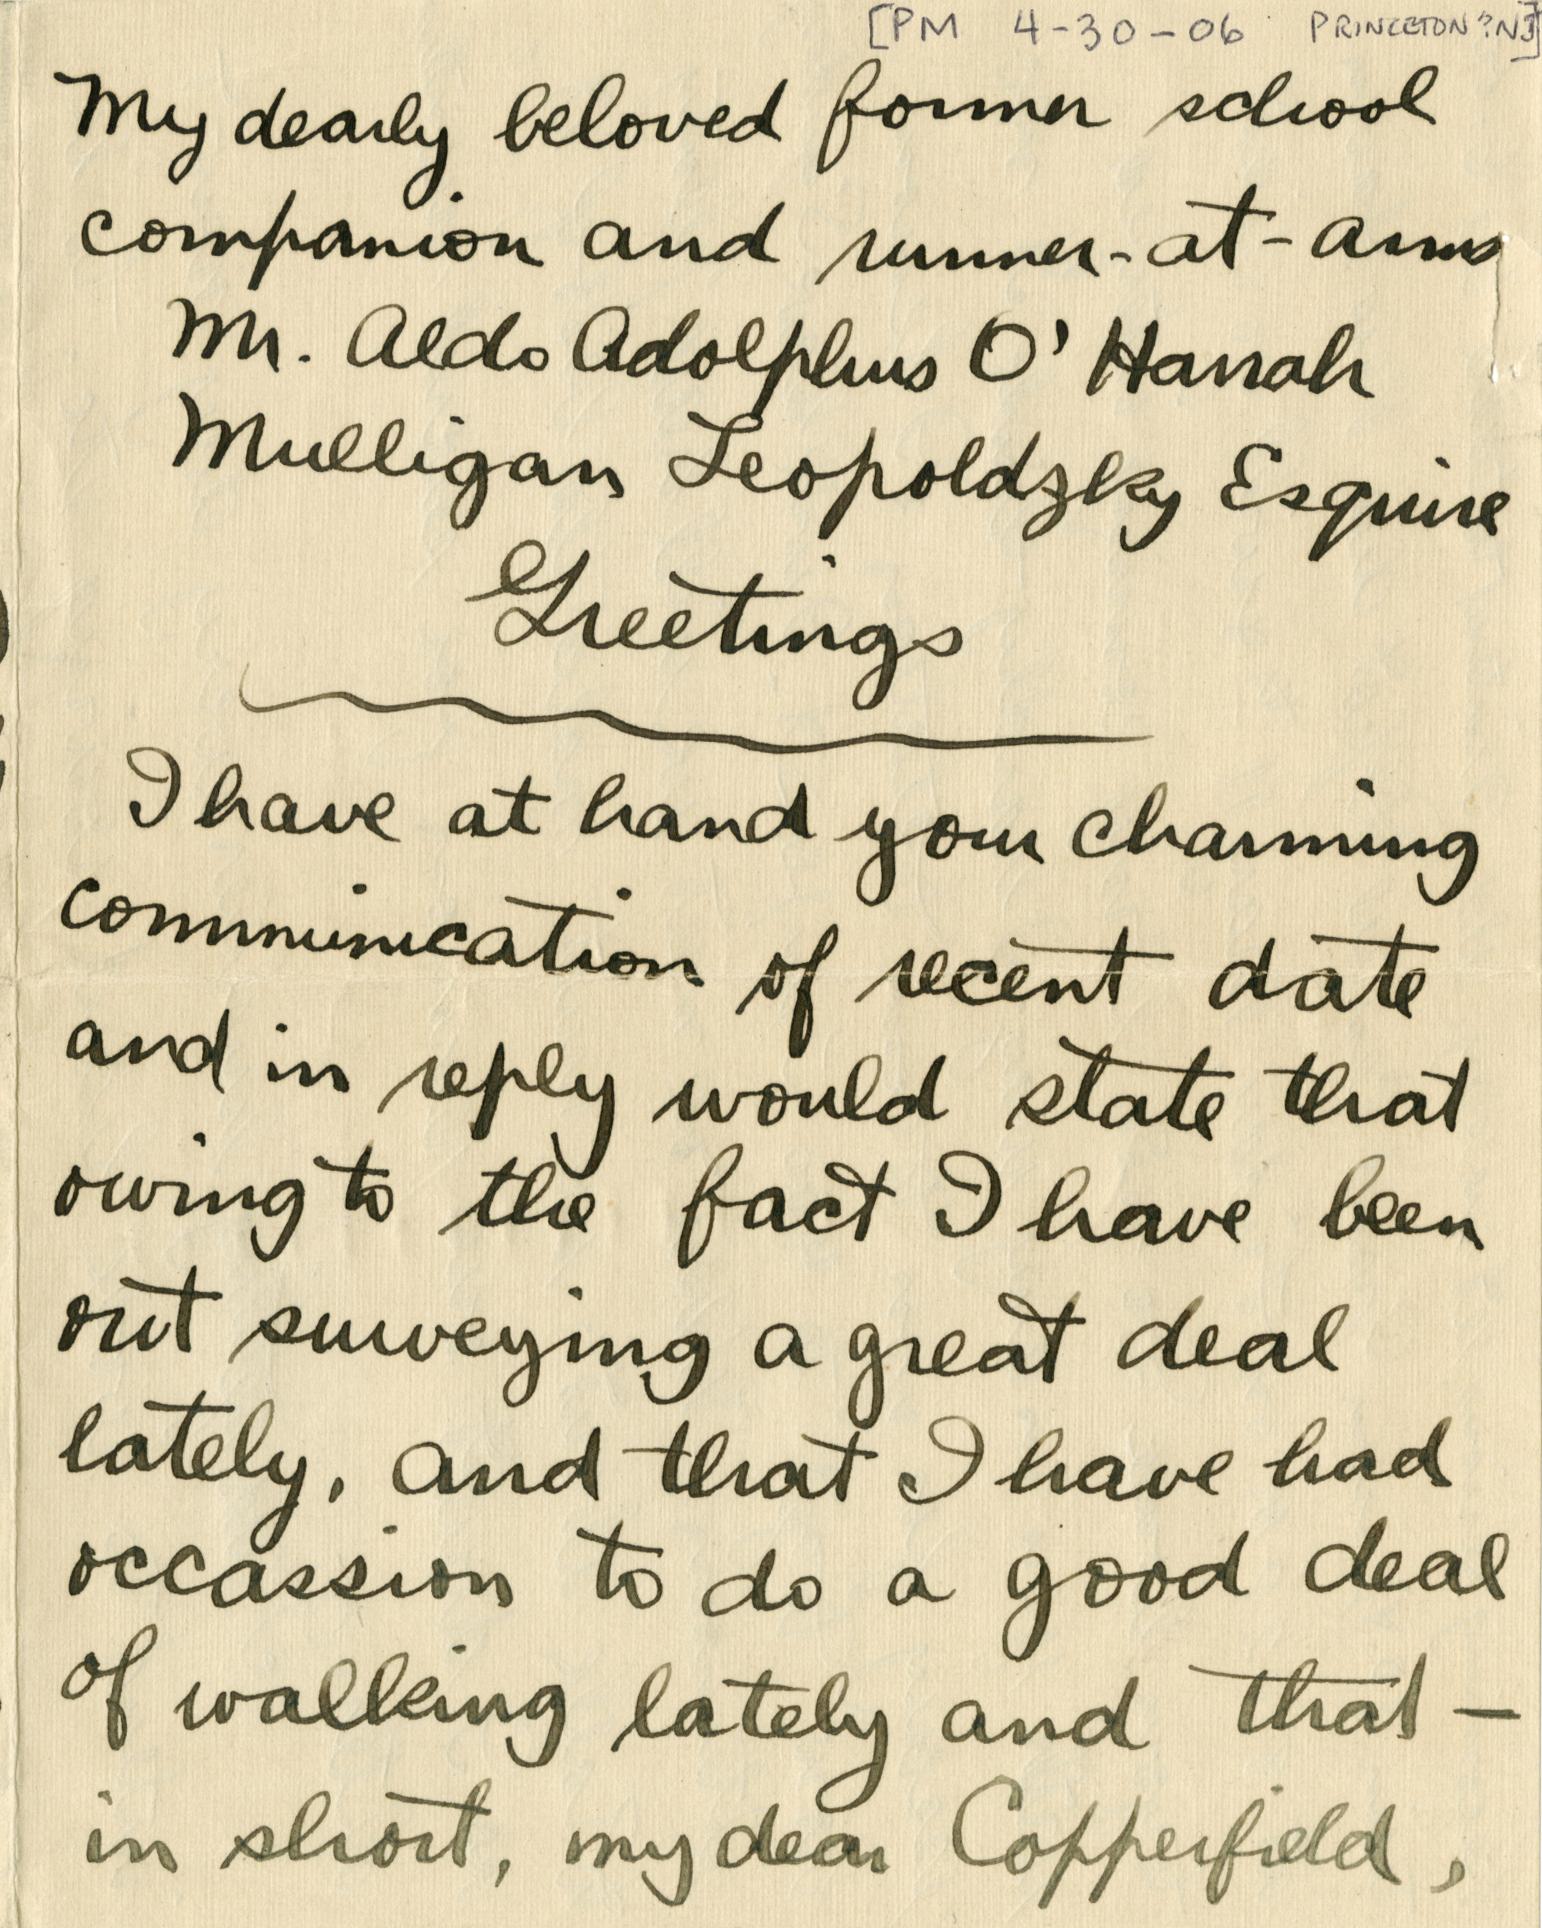 [PM 4-30-06 PRINCETON? NJ]
My dearly beloved former school
companion and runner-at-arms
Mr. Aldo Adolphus O'Hanah
Mulligan Leopoldzky Esquire
Greetings
I have at hand your charming
communication of recent date
and in reply would state that
owing to the fact I have been
out surveying a great deal
lately, and that I have had
occassion to do a good deal
of walking lately and that —
in short, my dear Copperfield,